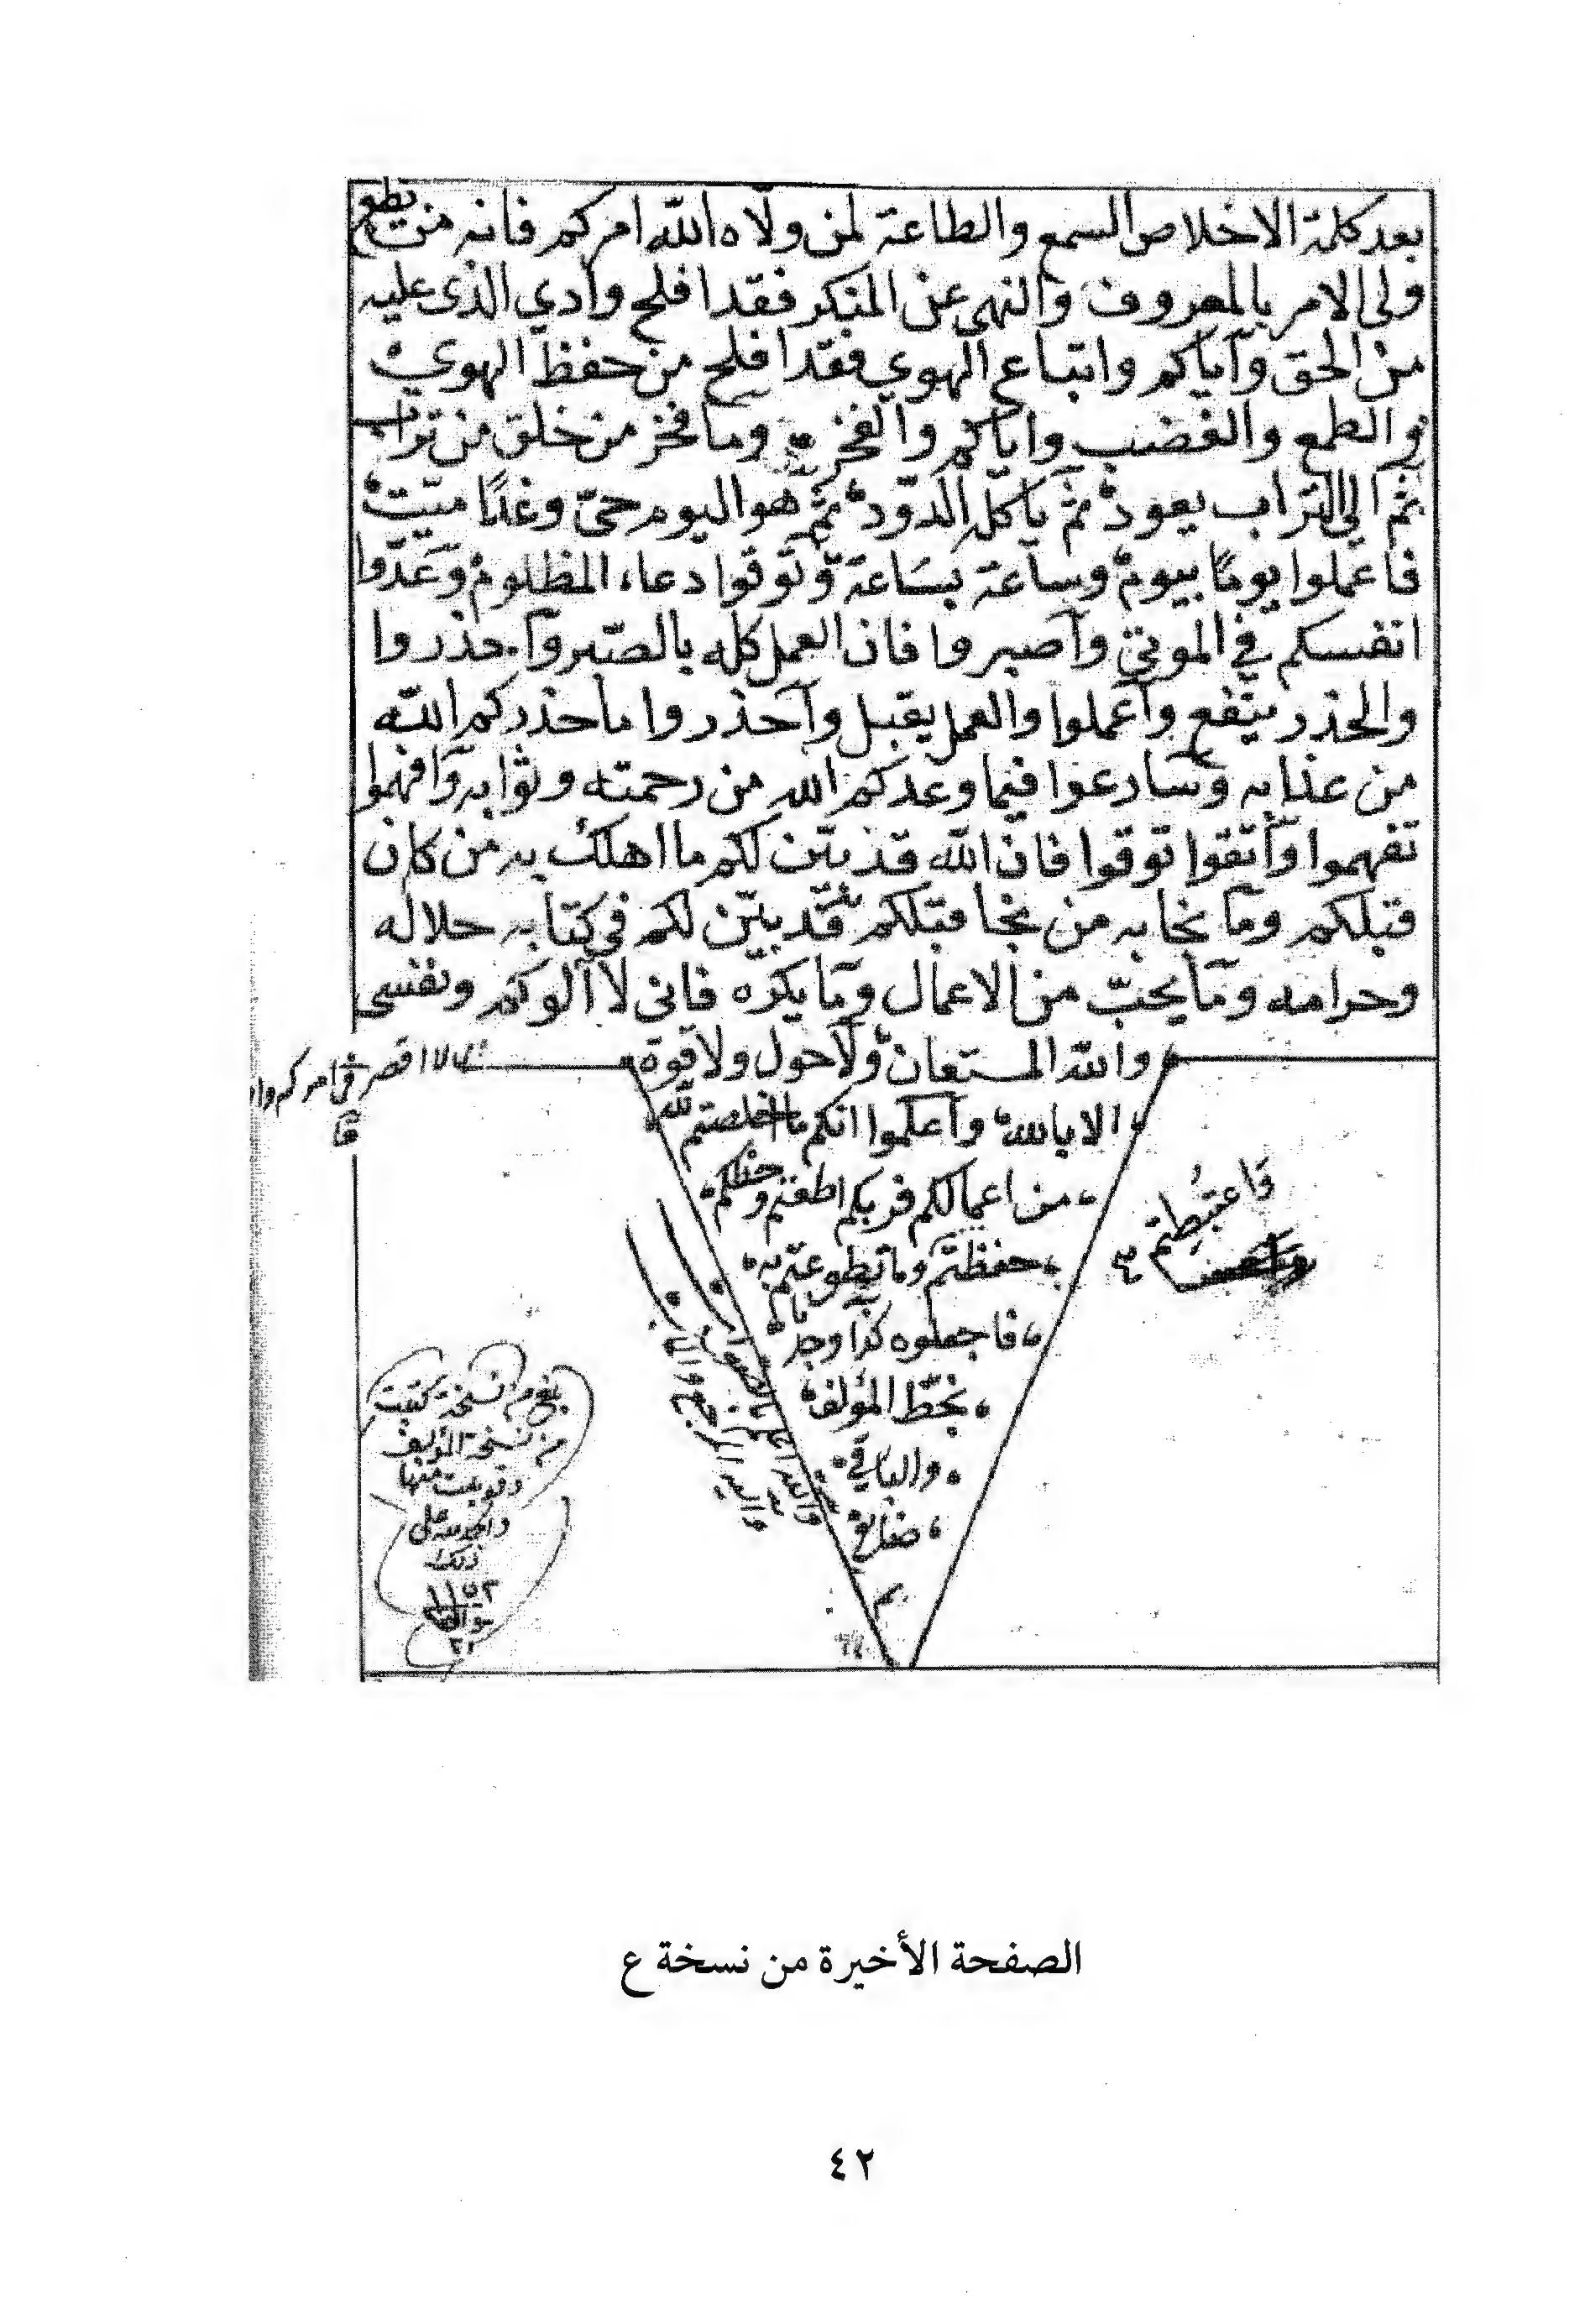 بعد كلمة الاخلاص السمع والطاعة لمن ولاه الله امركم فانه من يطع
ولي الامر بالمعروف والنهي عن المنكر فقد افلح وادي الذي عليه
من الحق وآياكم واتباع الهوي فقد افلح من حفظ الهوي
والطمع والغضب واياكم والفخر وما فخر من خلق من تراب
ثم الي التراب يعود ثم ياكله الدود ثم هو اليوم حيّ وغدًا ميّت
فاعملوا يومًا بيوم وساعة بسَاعة وتوقوا دعاء المظلوم وعدّوا
انفسكم في الموتي وآصبروا فان العمل كله بالصّبر وآحذروا
والحذر ينفع وآعملوا والعمل يقبل وآحذروا ما حذركم الله
من عذابه وسارعوا فيما وعدكم الله من رحمته وثوابه وآفهموا
تفهموا وآتقوا توقوا فان الله قد بيّن لكم ما اهلك به من كان
قبلكم وما نجا به من نجا قبلكم قد بيّن لكم في كتابه حلاله
وحرامه وما يحبّ من الاعمال وما يكره فاني لا آلوكم ونفسي
والله المستعان ولاحول ولا قوة
الا بالله وآعلموا انكم ما اخلصتم لله
من اعمالكم فربكم اطعتم وحظكم
حفظتم وما تطوعتم به
فاجعلوه كذا وجد
بخطّ المؤلف
والباقي
ضائع
م
واغتبطتم
بلغ من نسخة كتبت
من نسخة المؤلف
وقوبلت منها
والحمد لله على
ذلك
١١٥٢
الصفحة الأخيرة من نسخة ع
٤٢